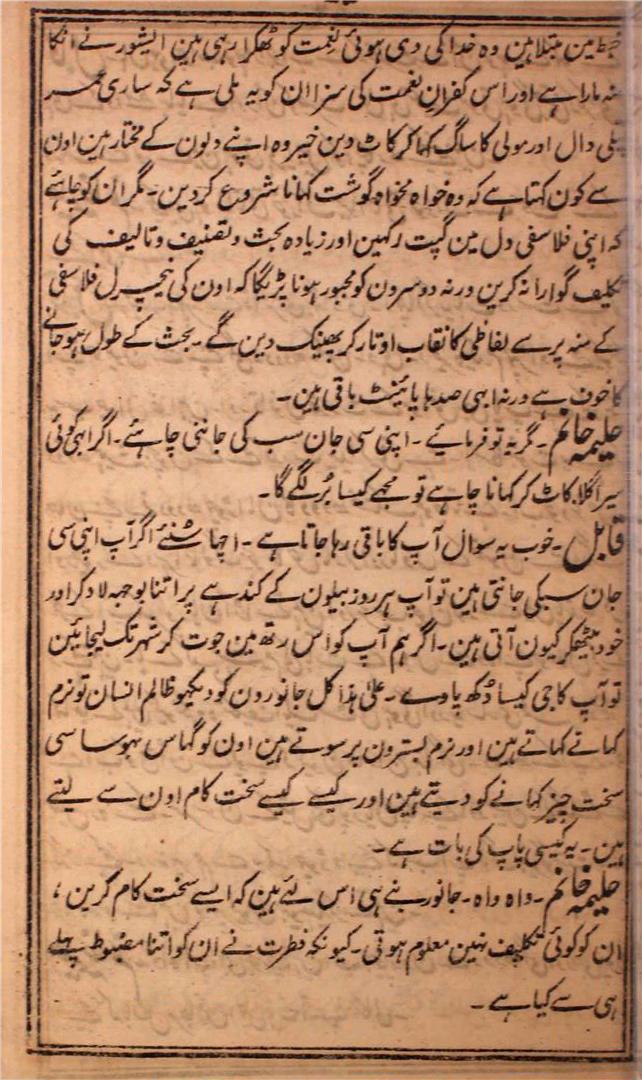 خبط مین مبتلا ہین وہ خدا کی دی ہوئی نعمت کو ٹھکرا رہی ہین ایشور نے انکا
منہ مارا ہے اور اس کفران نعمت کی سزا ان کو یہ ملی ہے کہ ساری عمر
پتلی دال اور مولی کا ساگ کھا کر کاٹ دین خیر وہ اپنے دلون کے مختار ہین اون
سے کون کہتا ہے کہ وہ خواہ مخواہ گوشت کہانا شروع کر دین ۔ مگر ان کو چاہئے
کہ اپنی فلاسفی دل مین گپت رکہین اور زیادہ بحث و تصنیف و تالیف کی
تکلیف گوارا نہ کرین ورنہ دوسرون کو مجبور ہونا پڑیگا کہ اون کی نیچرل فلاسفی
کے منہ پر سے لفاظی کا نقاب اوتار کر پھینک دین گے ۔ بحث کے طول ہو جانے
کا خوف ہے ورنہ ابہی صدہا پائینٹ باقی ہین ۔
حلیمہ خانم ۔ مگر یہ تو فرمائیے ۔ اپنی سی جان سب کی جاننی چاہئے ۔ اگر ابہی کوئی
میرا گلا کاٹ کر کہانا چاہے تو مجہے کیسا برُ لگے گا ۔
قابل ۔ خوب یہ سوال آپ کا باقی رہا جاتا ہے ۔ اچہا سُنئے اگر آپ اپنی سی
جان سبکی جانتی ہین تو آپ ہر روز بیلون کے کندہے پر اتنا بوجہہ لاد کر اور
خود بیٹھکر کیون آتی ہین ۔ اگر ہم آپ کو اس رتھ مین جوت کر شہر تک لیجائین
تو آپ کا جی کیسا دُکھ پاوے ۔ علیٰ ہذا کل جانورون کو دیکہو ظالم انسان تو نرم
کہانے کہاتے ہین اور نرم بسترون پر سوتے ہین اون کو گہاس بہوسا سی
سخت چیز کہانے کو دیتے ہین اور کیسے کیسے سخت کام اون سے لیتے
ہین ۔ یہ کیسی پاپ کی بات ہے ۔
حلیمہ خانم ۔ واہ واہ ۔ جانور بنے ہی اس لئے ہین کہ ایسے سخت کام کرین ،
ان کو کوئی تکلیف نہین معلوم ہوتی ۔ کیونکہ فطرت نے ان کو اتنا مضبوط پہلے
ہی سے کیا ہے ۔